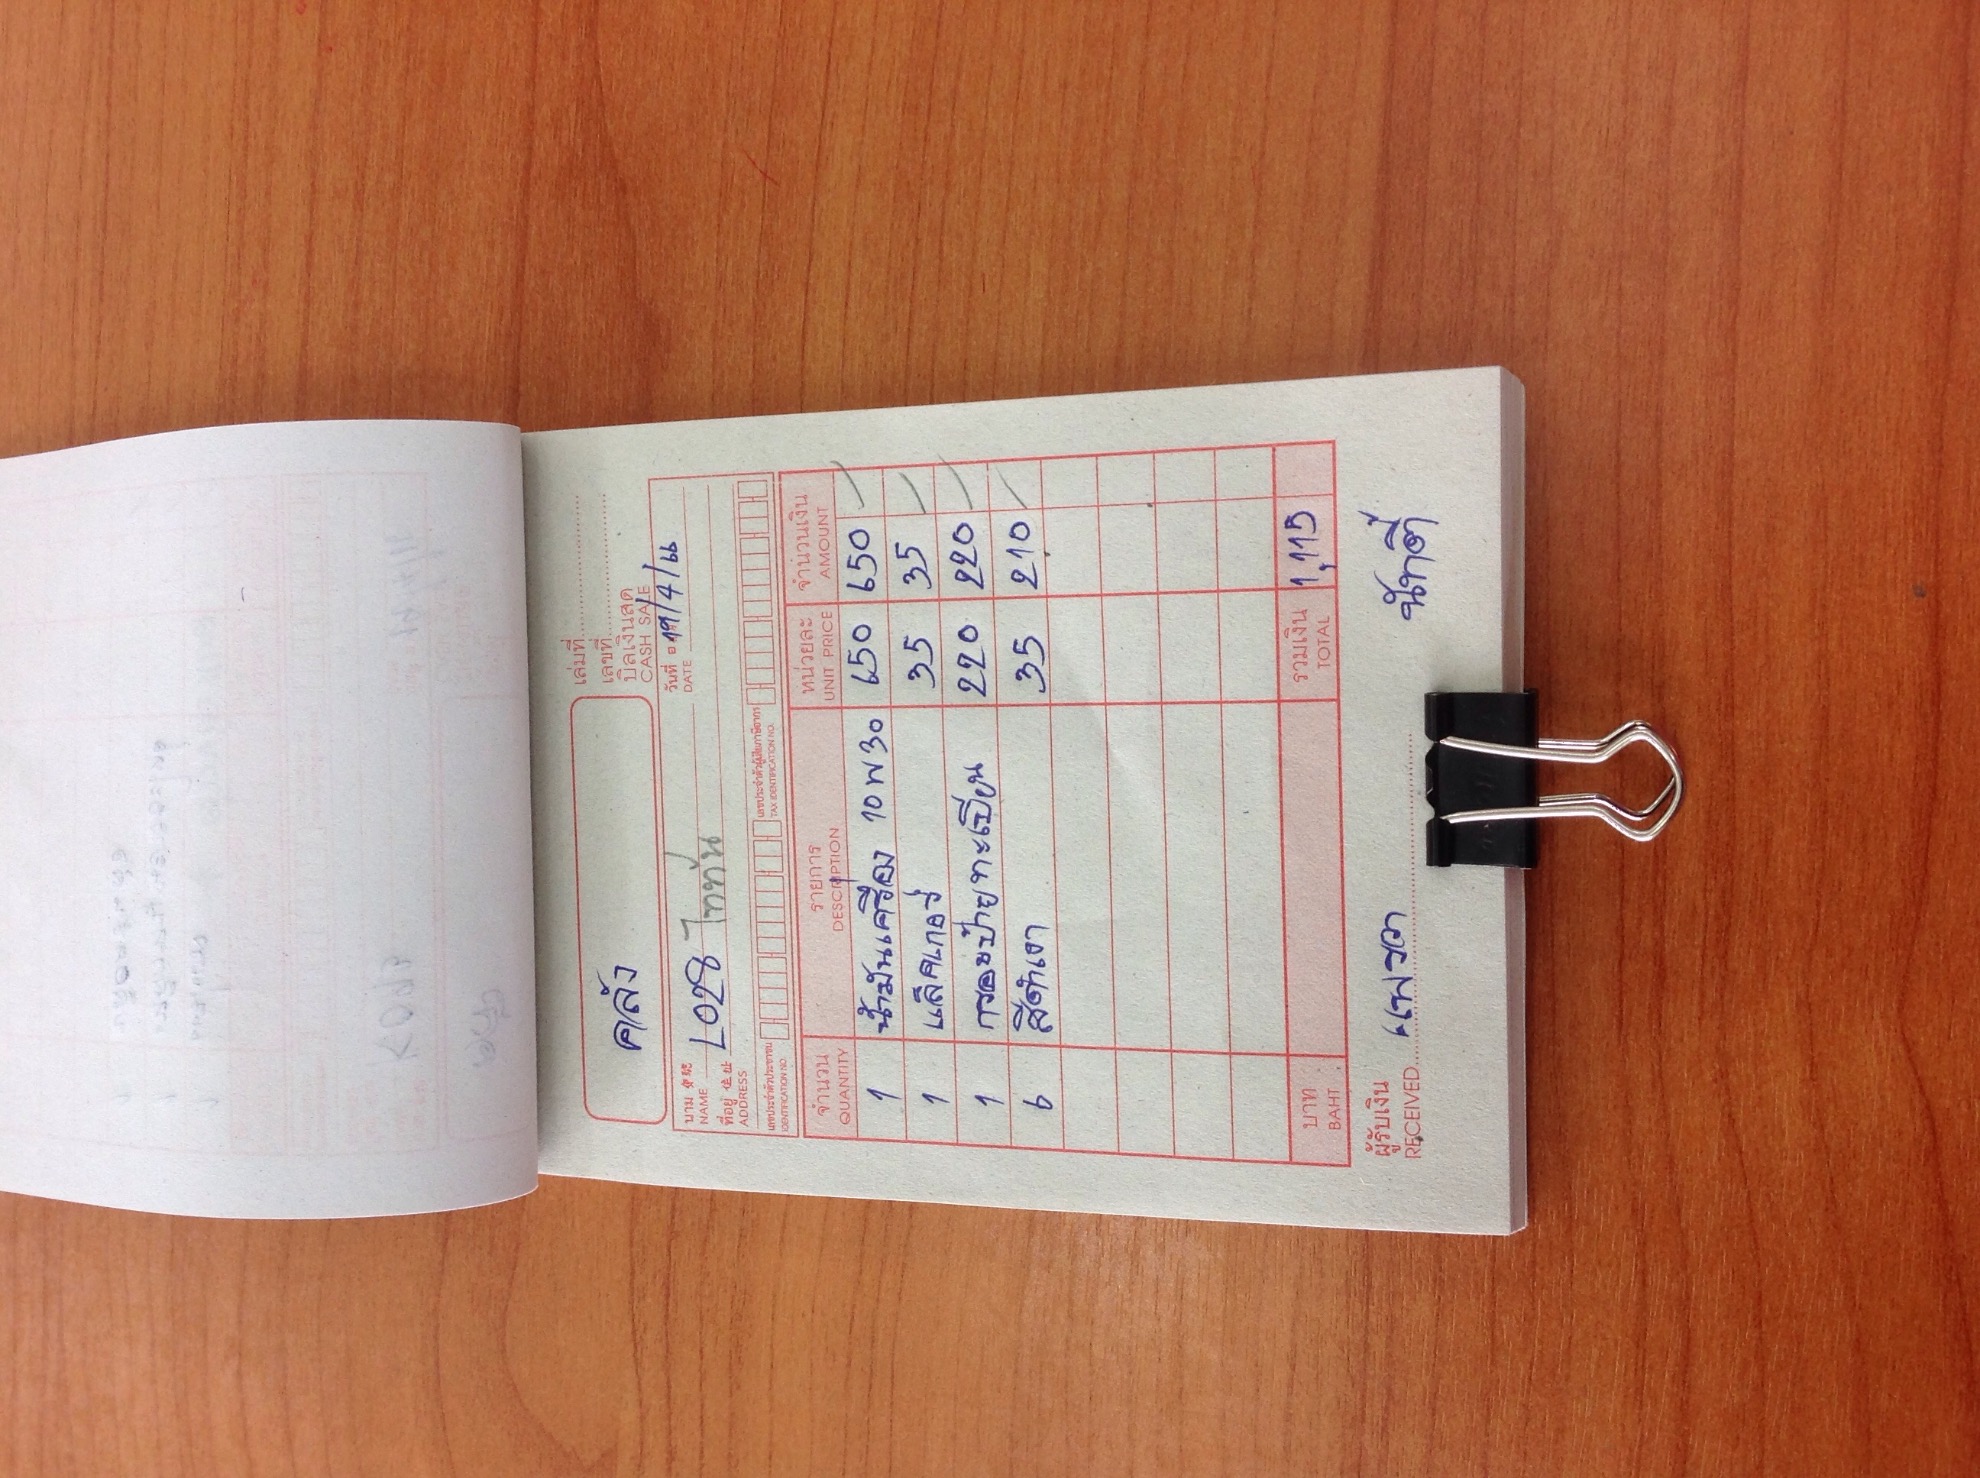 เล่มที่
เลขที่
คลัง
บิลเงินสด
CASH SALE
นาม
NAME
วันที่ 19/4/66
DATE
L028 ไททัน
ที่อยู่
ADDRESS
เลขประจำตัวประชาชน
IDENTIFICATION NO.
เลขประจำตัวผู้เสียภาษีอากร
TAX IDENTIFICATION NO.
จำนวน รายการ หน่วยละ จำนวนเงิน
QUANTITY DESCRIPTION UNIT PRICE AMOUNT
1 น้ำมันเครื่อง 10W30 650 650
1 แล็คเกอร์ 35 35
1 กรอบป้ายทะเบียน 220 220
6 สีดำเงา 35 210
บาท รวมเงิน 1,115
BAHT TOTAL
ผู้รับเงิน
RECEIVED